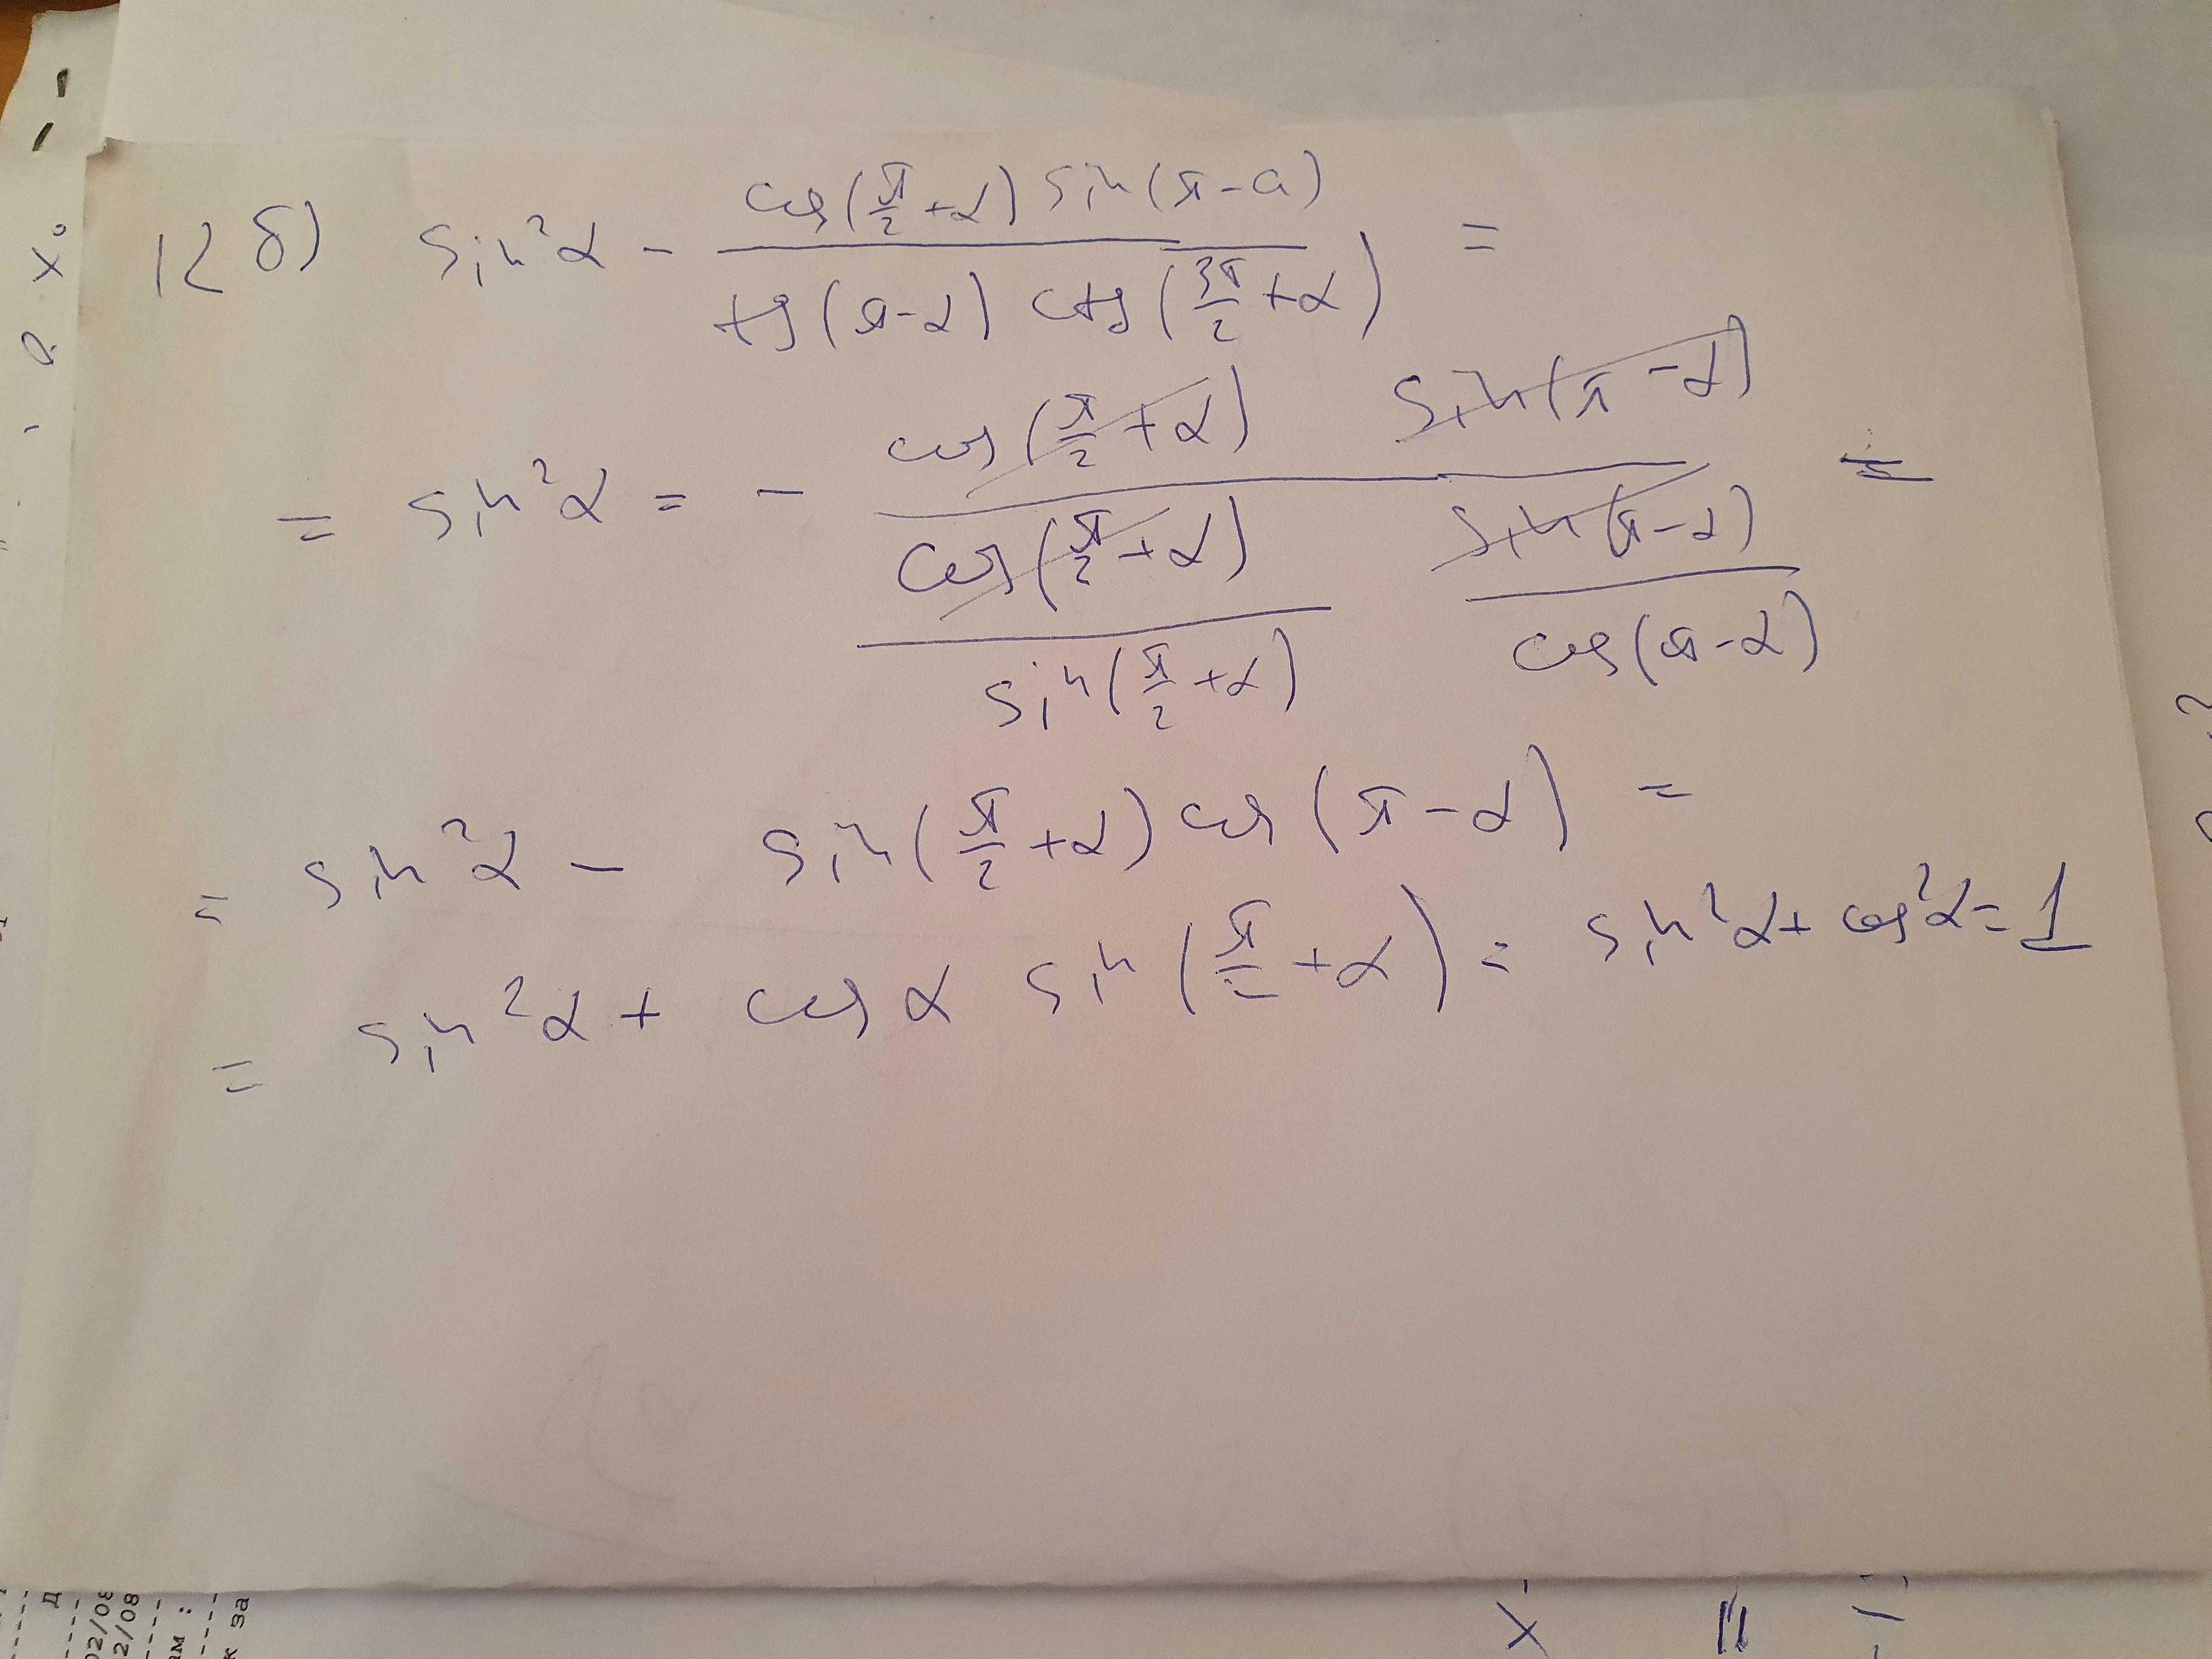 12 б) sin²α - cos(π/2 + α) sin(π - a) / tg(π - α) ctg(3π/2 + α) =
= sin²α = - cos(π/2 + α) sin(π - α) / (cos(π/2 + α) / sin(π/2 + α) sin(π - α) / cos(π - α)) =
= sin²α - sin(π/2 + α) cos(π - α) =
= sin²α + cos α sin(π/2 + α) = sin²α + cos²α = 1
Д
02/08
2/08
к за